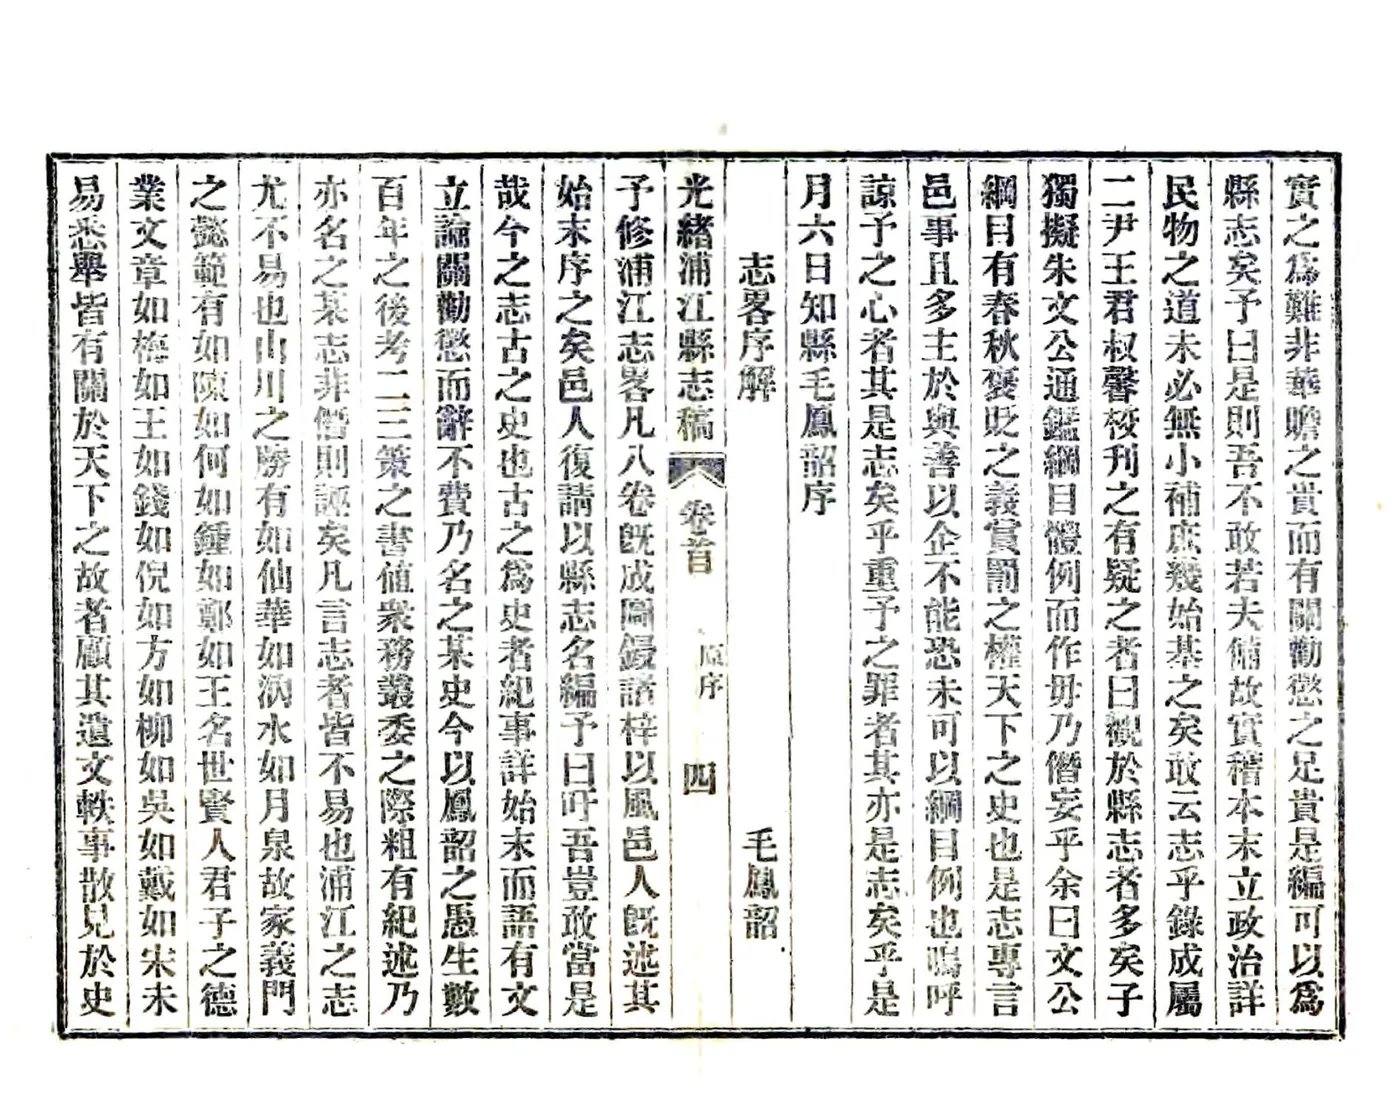 實之爲難非華贍之貴而有關勸懲之足貴是編可以爲
縣志矣予曰是則吾不敢若夫備故實稽本末立政治詳
民物之道未必無小補庶幾始基之矣敢云志乎錄成屬
二尹王君叔馨校刊之有疑之者曰觀於縣志者多矣子
獨擬朱文公通鑑綱目體例而作毋乃僭妄乎余曰文公
綱目有春秋褒貶之義賞罰之權天下之史也是志專言
邑事且多主於與善以企不能恐未可以綱目例也嗚呼
諒予之心者其是志矣乎重予之罪者其亦是志矣乎是
月六日知縣毛鳳韶序
志畧序解 毛鳳韶
光緒浦江縣志稿 卷首 原序 四
予修浦江志畧凡八卷旣成圖鋟諸梓以風邑人旣述其
始末序之矣邑人復請以縣志名編予曰吁吾豈敢當是
哉今之志古之史也古之爲史者紀事詳始末而語有文
立論關勸懲而辭不費乃名之某史今以鳳韶之愚生數
百年之後考二三策之書値衆務叢委之際粗有紀述乃
亦名之某志非僭則誣矣凡言志者皆不易也浦江之志
尤不易也山川之勝有如仙華如泂水如月泉故家義門
之懿範有如陳如何如鍾如鄭如王名世賢人君子之德
業文章如梅如王如錢如倪如方如柳如吳如戴如宋未
易悉舉皆有關於天下之故者顧其遺文軼事散見於史